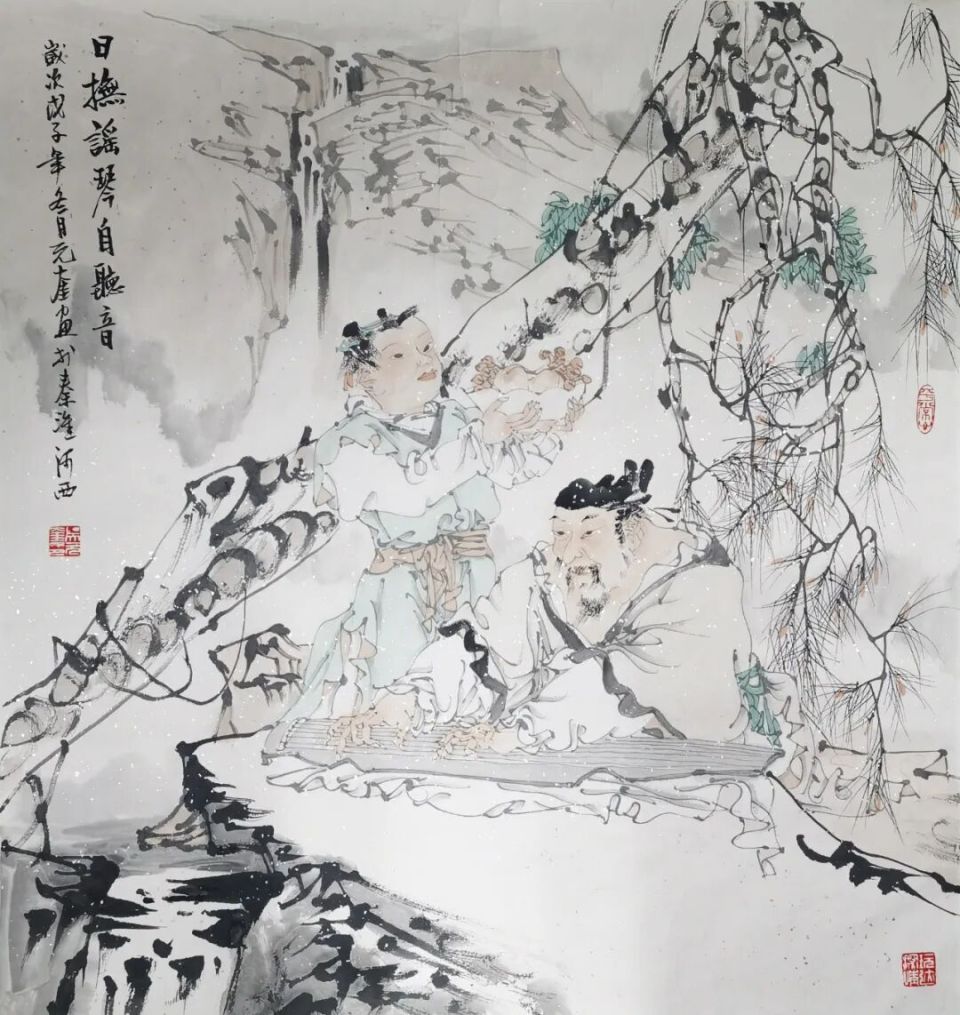 日撫謡琴自聽音
歲次戊子年冬月元奎畫於秦淮河西